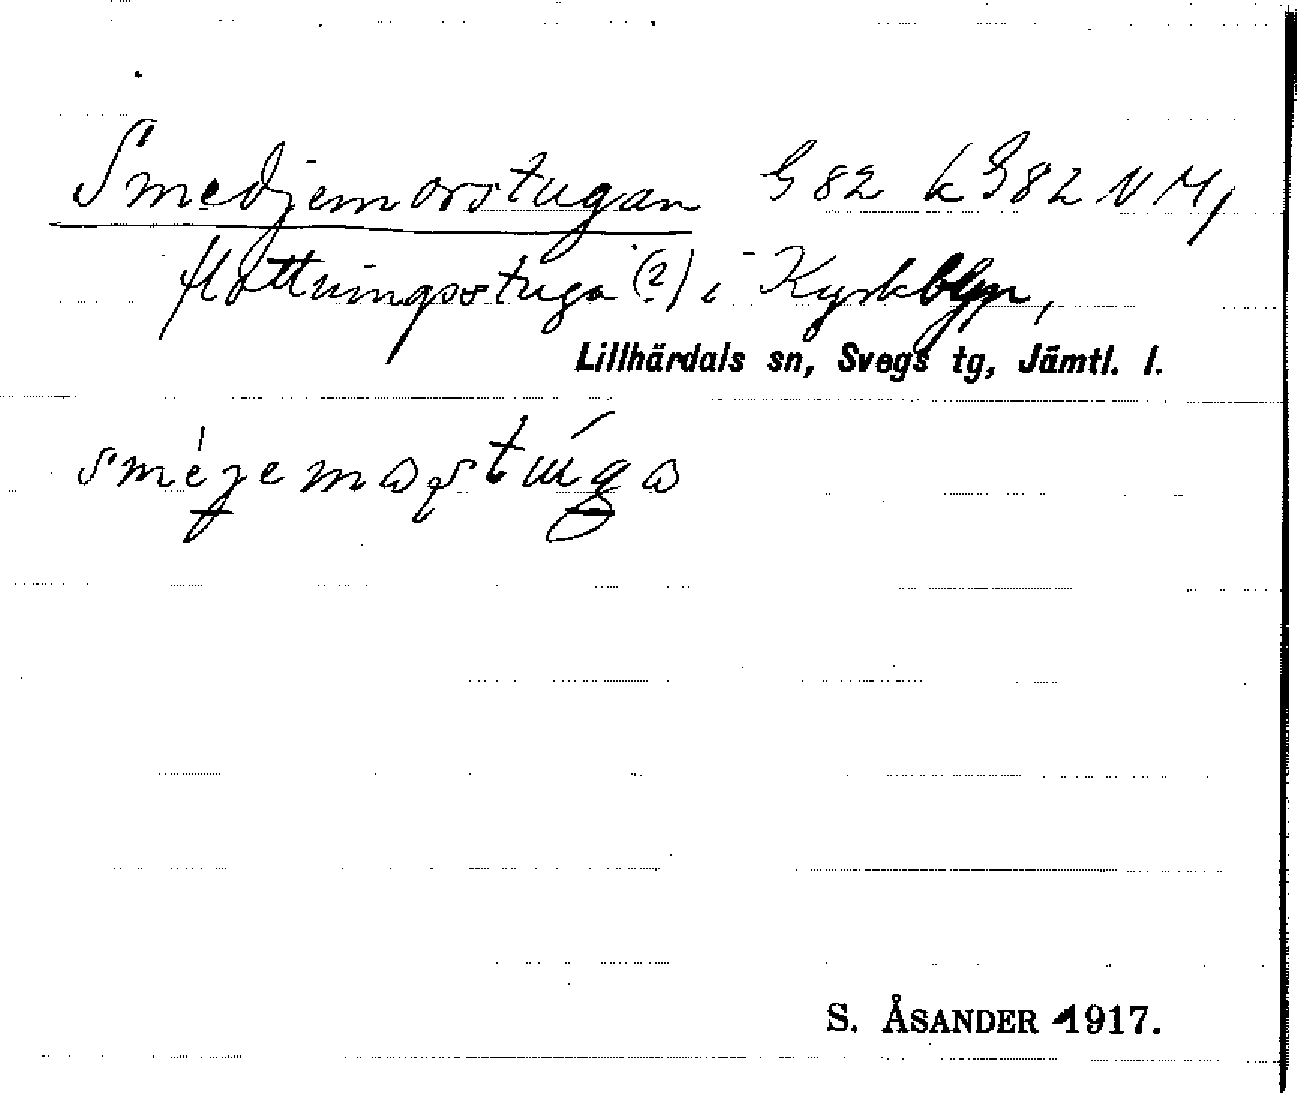 Smedjemorstugan G 82 k G 82 N M,
flottningsstuga (2) i Kyrkbyn,
Lillhärdals sn, Svegs tg, Jämtl. l.
S. ÅSANDER 1917.